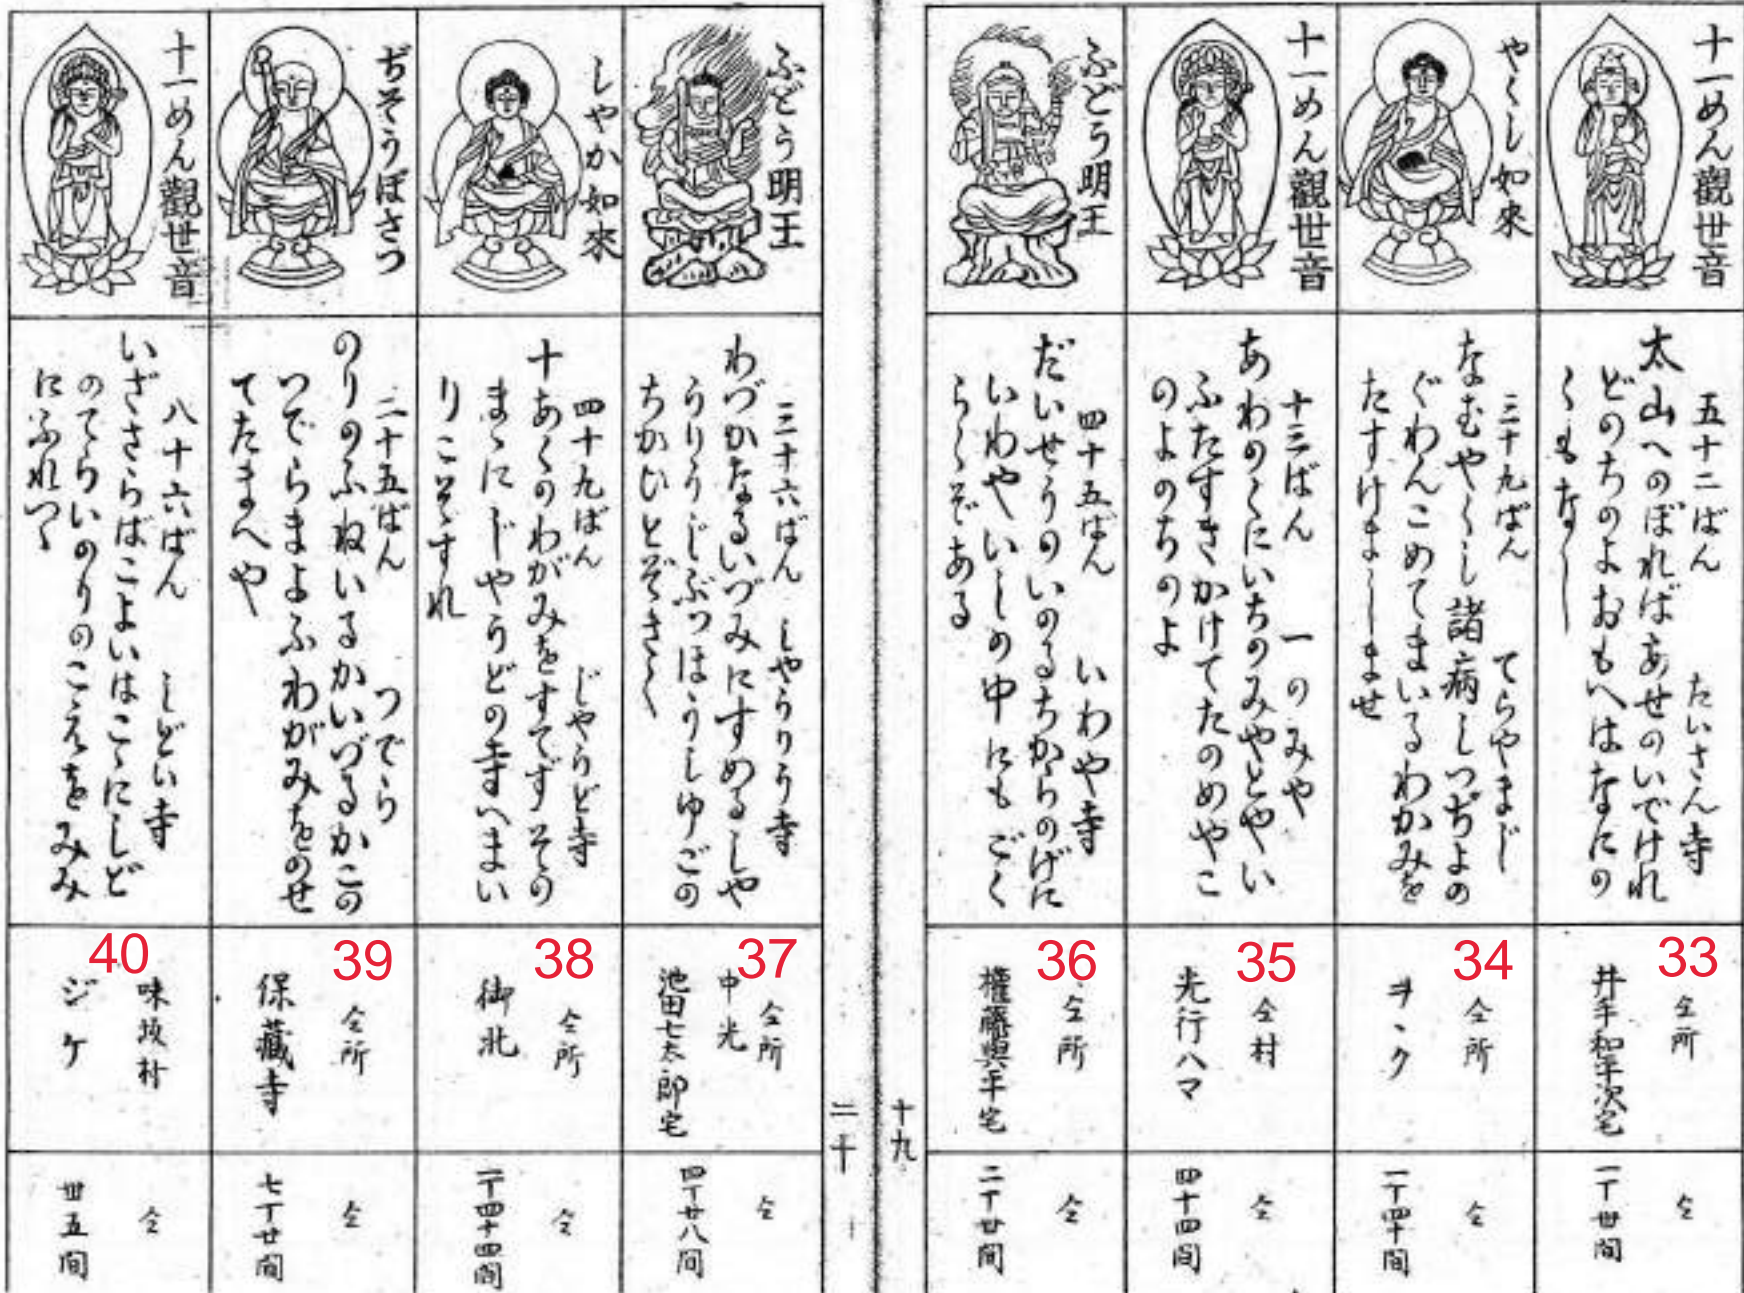 十一めん觀世音
五十二ばん　たいさん寺
太山へのぼればあせのいでけれ
どのちのよおもへはなにの
くもなし
33
仝所
井手和平次宅
仝
一丁廿間
やくし如來
三十九ばん　てらやまじ
なむやくし諸病しつぢよの
ぐわんこめてまいるわかみを
たすけましませ
34
仝所
ヰヽク
仝
一丁四十間
十一めん觀世音
十三ばん　一のみや
あわのくにいちのみやとやい
ふたすきかけてたのめやこ
のよのちのよ
35
仝村
光行ハマ
仝
四十四間
ふどう明王
四十五ばん　いわや寺
だいせうのいのるちからのげに
いわやいしの中にもごく
らくぞある
36
仝所
權藤與平宅
仝
二丁廿間
十九
二十
ふどう明王
三十六ばん　しやうりう寺
わづかなるいづみにすめるしや
うりうじぶつほうしゆごの
ちかひとぞきく
37
仝所
中光
池田七太郎宅
仝
四丁廿八間
しやか如來
四十九ばん　じやうど寺
十あくのわがみをすてずその
まゝにじやうどの寺へまい
りこそすれ
38
仝所
御北
仝
一丁四十四間
ぢそうぼさつ
二十五ばん　つでら
のりのふねいるかいづるかこの
つでらまよふわがみをのせ
てたまへや
39
仝所
保藏寺
仝
七丁廿間
十一めん觀世音
八十六ばん　しどい寺
いざさらばこよいはこゝにしど
のてらいのりのこえをみみ
にふれつゝ
40
味坂村
ジケ
仝
卅五間